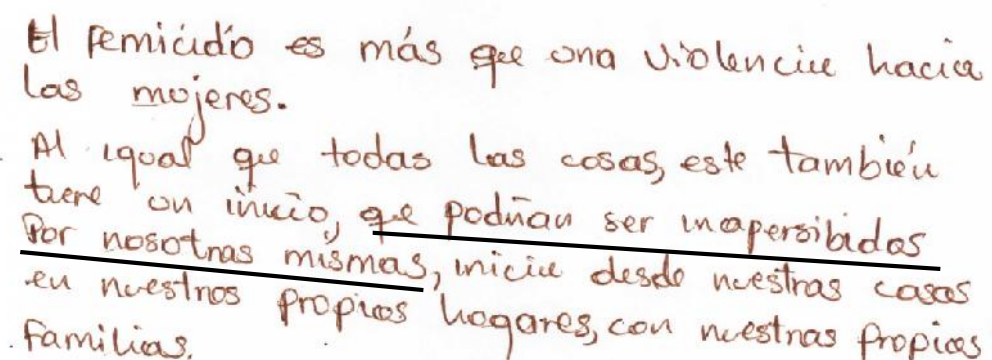 El femicidio es más que una violencia hacia
las mujeres.
Al igual que todas las cosas, este también
tiene un inicio, que podrían ser inapersibidas
Por nosotras mismas, inicia desde nuestras casas
en nuestros propios hogares, con nuestras propias
familias.